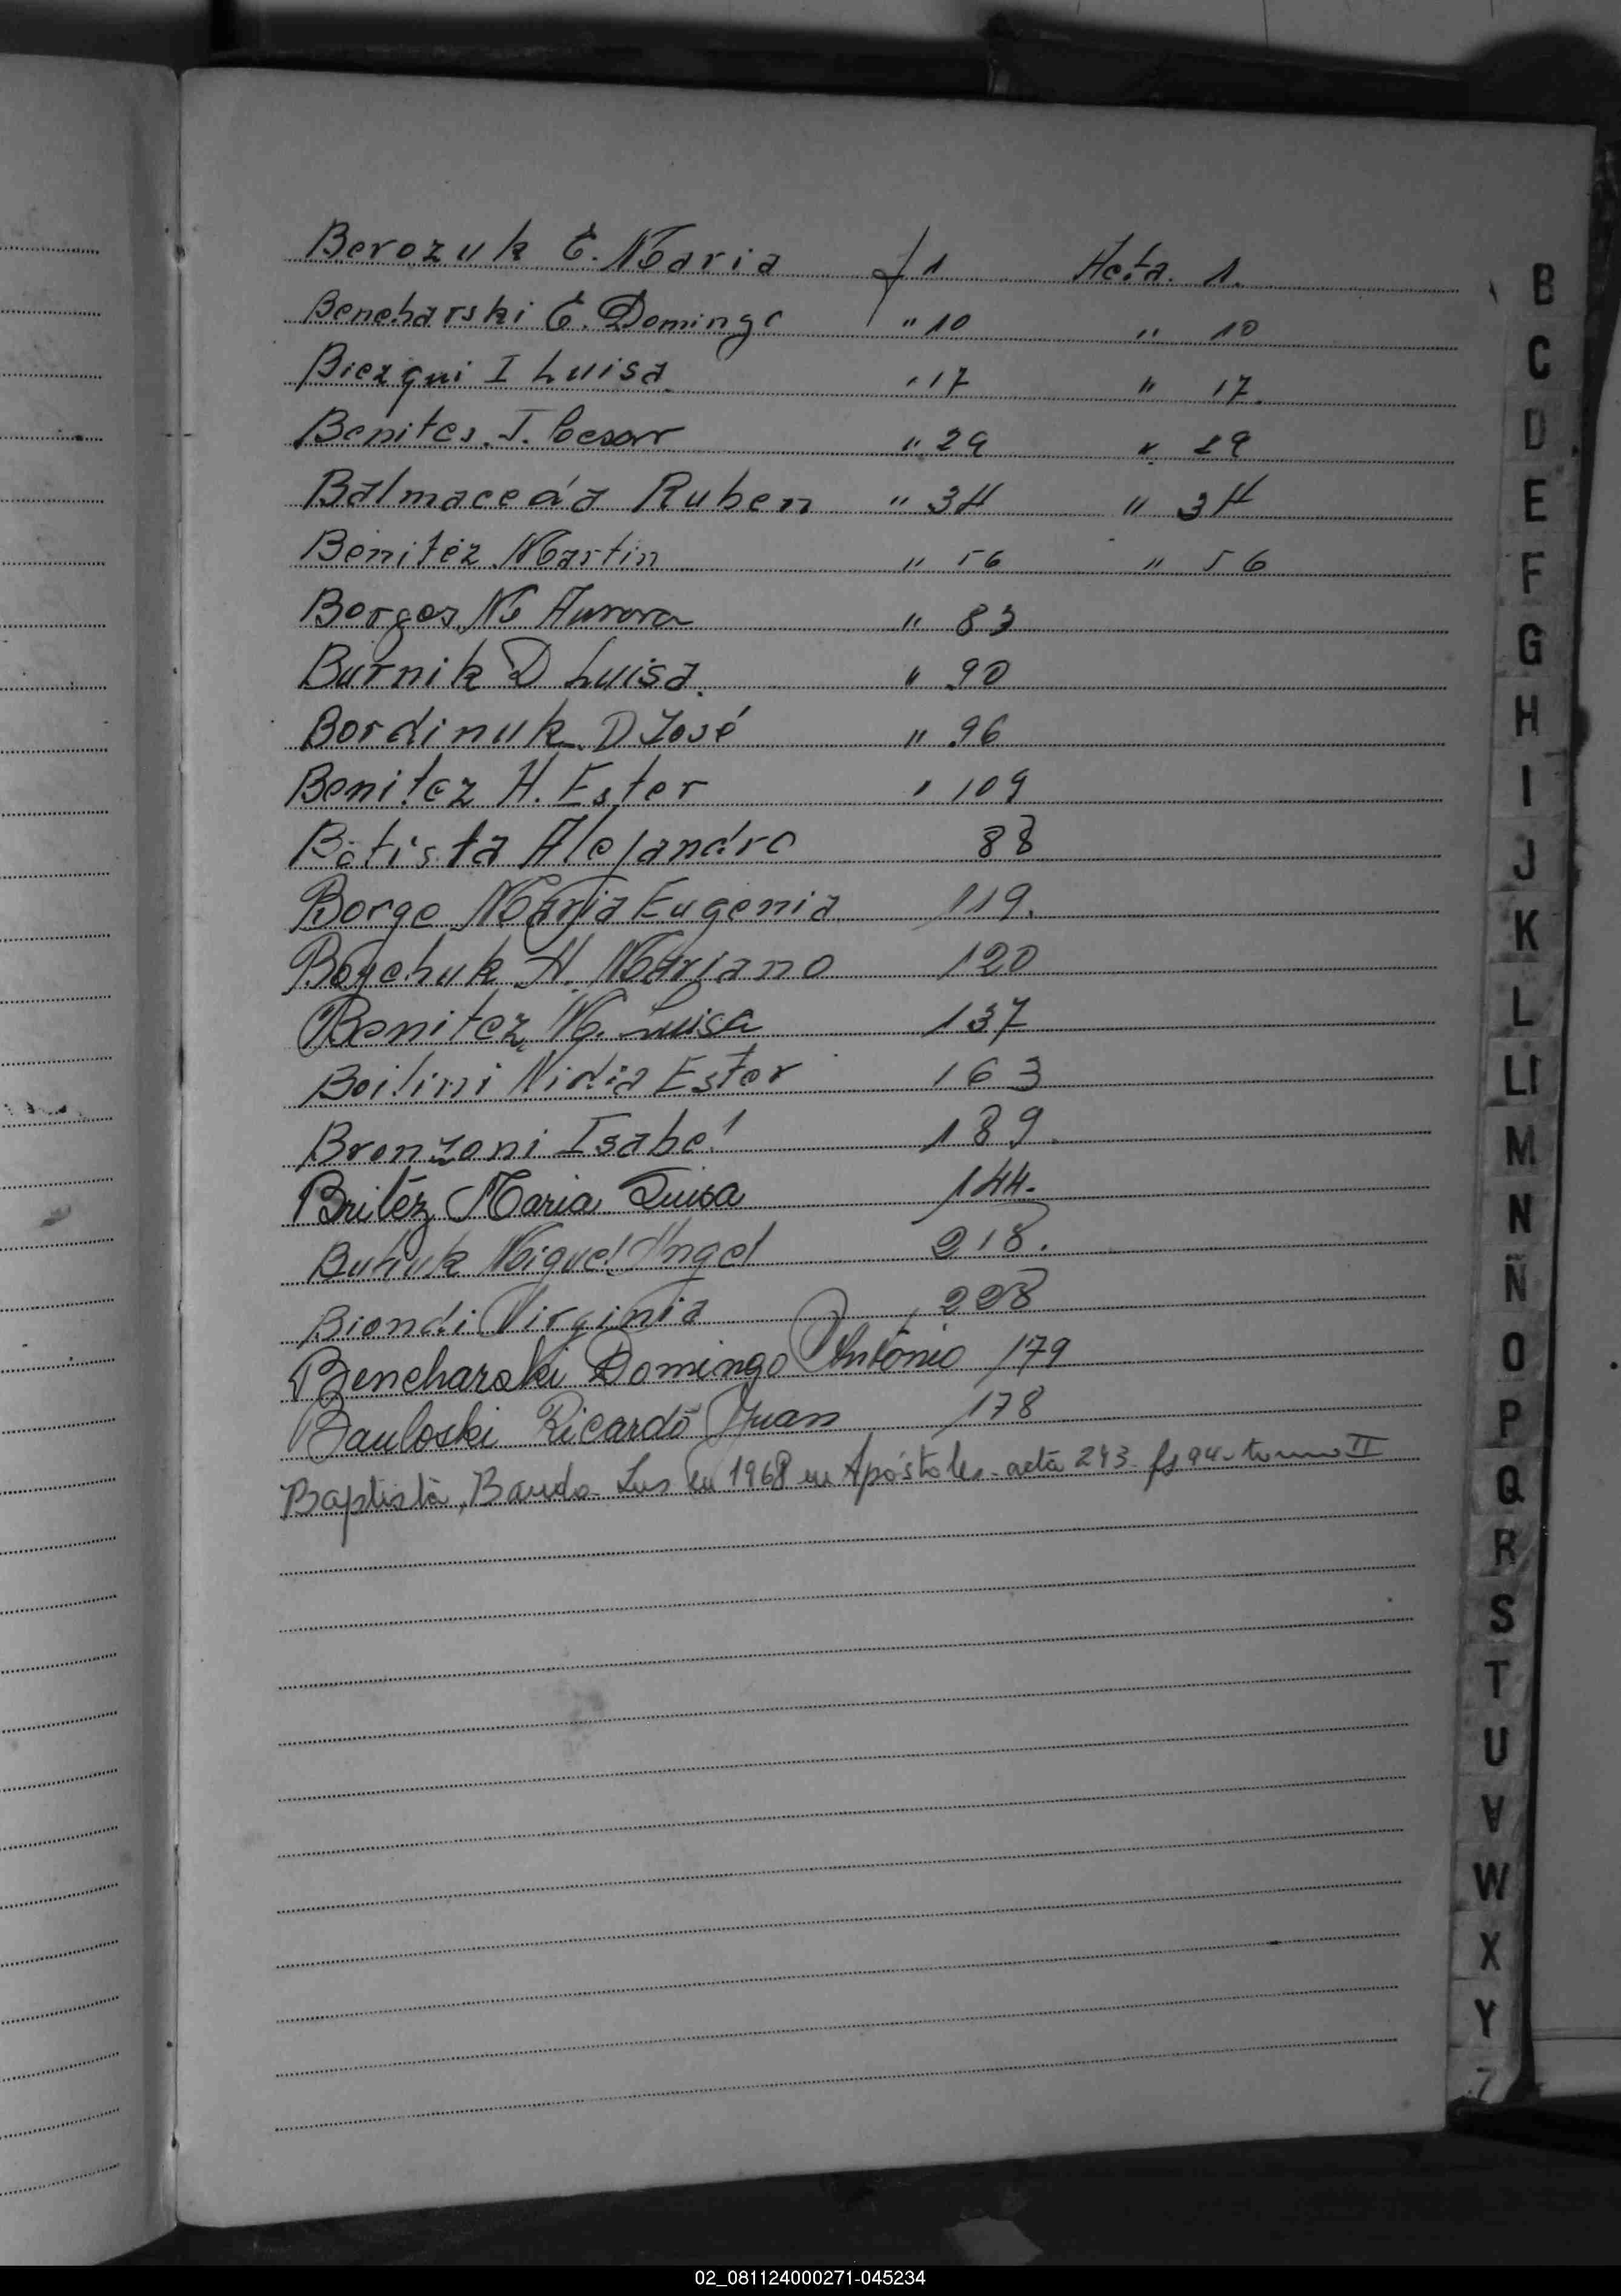 Berozuk E. Maria f 1 Acta. 1.
Beneharski E. Domingo " 10 " 10
Biezqui I Luisa. " 17 " 17.
Benites. J. Cesar " 29 " 29
Balmaceda Ruben " 34 " 34
Benitéz Martin " 56 " 56
Borges, M Aurora " 83
Burnik D Luisa. " 90
Bordinuk D José " 96
Benitez H. Ester " 109
Batista Alejandro 88
Borge Maria Eugenia 119.
Boychuk A. Mariano 120
Benitez, M. Luisa 137
Nidia Ester 163
Bronzoni Isabel 189.
Britéz Maria Luisa 144.
Miguel Angel 218.
Biondi Virginia 228
Beneharski Domingo Antonio 179
Bauloski Ricardo Juan 178
Baptista, Ins en 1968 en Apóstoles - acta 243 fs 94 - tomo II
B
C
D
E
F
G
H
I
J
K
L
Ll
M
N
Ñ
O
P
Q
R
S
T
U
V
W
X
Y
Z
02_081124000271-045234